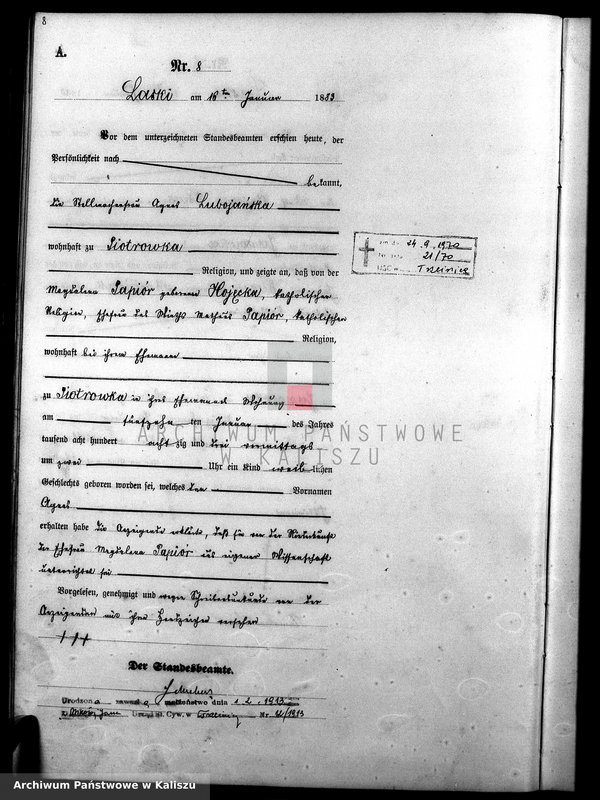 8
A.
Nr. 8
Laski am 16ten Januar 1883
Vor dem unterzeichneten Standesbeamten erschien heute, der
Persönlichkeit nach
bekannt,
die Stellmacherfrau Agnes Lubojańska
wohnhaft zu Piotrowka
Religion, und zeigte an, daß von der
Magdalena Papiór geborene katholischer
Religion, Ehefrau des Mathias Papiór, katholischer
Religion,
wohnhaft bei ihrem Ehemann
zu Piotrowka in ihres Ehemannes Wohnung
am fünfzehnten Januar des Jahres
tausend acht hundert achtzig und drei vormittags
um zwei Uhr ein Kind weiblichen
Geschlechts geboren worden sei, welches den Vornamen
Agnes
erhalten habe die Anzeigende erklärte, daß sie von der Niederkunft
der Ehefrau Magdalena Papiór aus eigener Wissenschaft
unterrichtet sei
Vorgelesen, genehmigt und wegen Schreibensunkunde von der
Anzeigenden mit ihrem Handzeichen versehen
+++
Der Standesbeamte.
Urodzona zawarła małżeństwo dnia 1.2.1913
Urząd St. Cyw. w Nr. /1913
24.9.1970
21/70
USC w Trzcinica
ARCHIWUM PAŃSTWOWE
W KALISZU
Archiwum Państwowe w Kaliszu